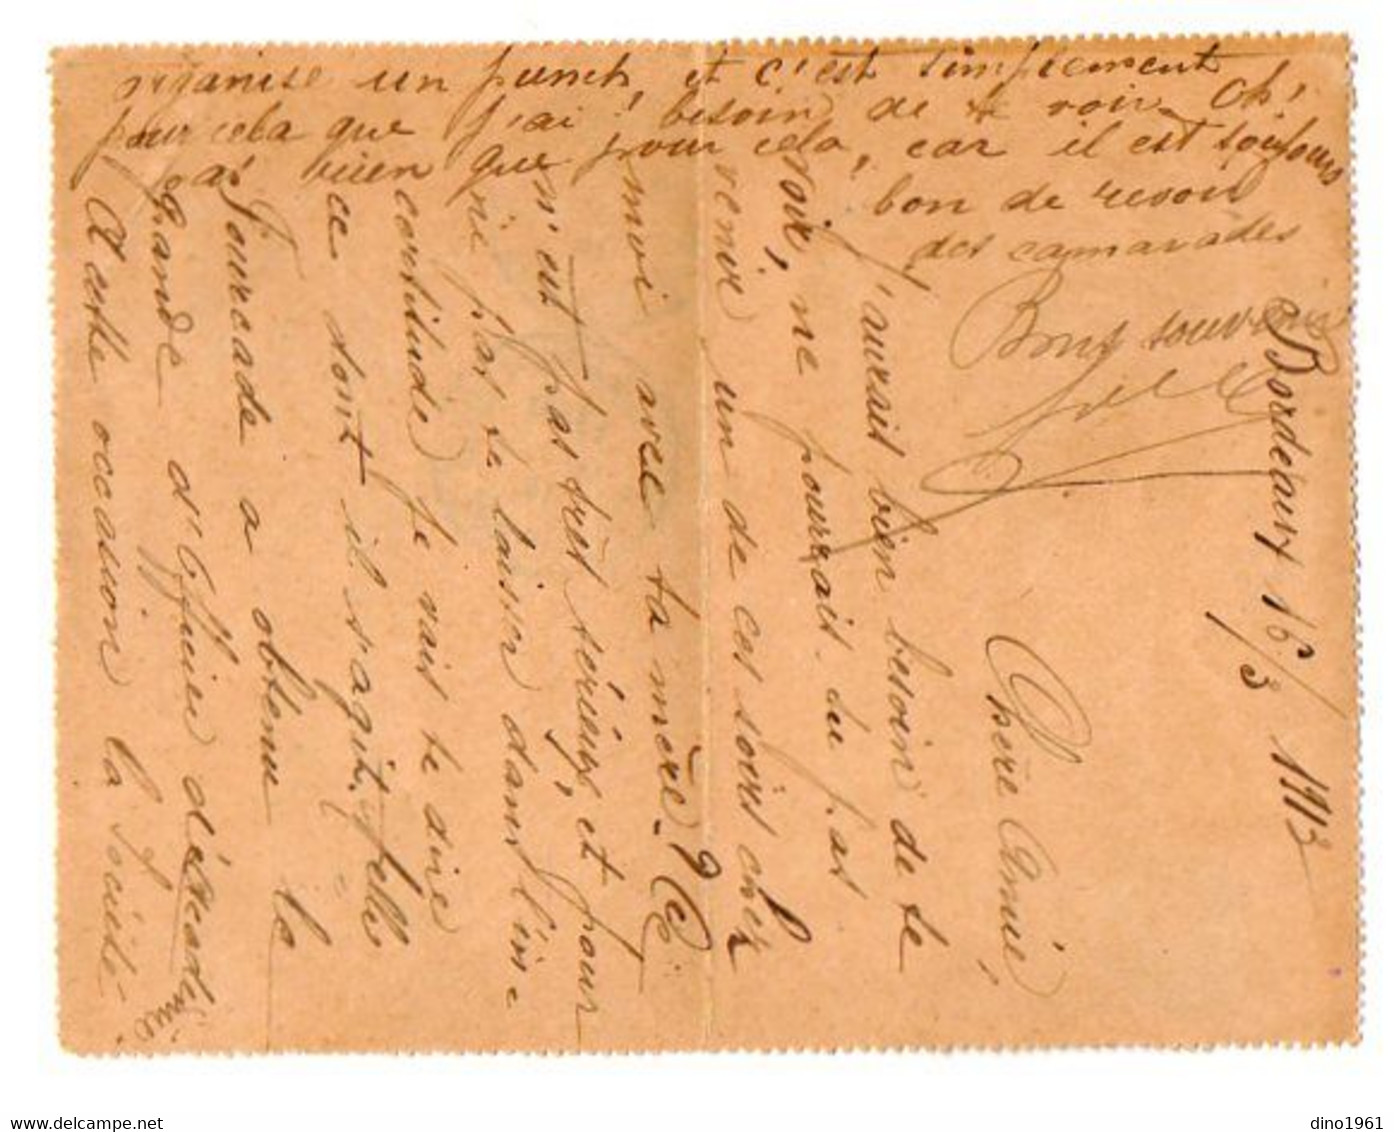 Bordeaux 16/3 1913
Chère Amie,
J'aurait bien besoin de te
voir, ne pourrait-tu pas
venir un de ces soirs chez
moi avec ta mère? Ce
n'est pas très sérieux, et pour
ne pas te laisser dans l'in-
certitude je vais te dire
ce dont il s'agit. Mlle
Fourcade a obtenu la
grande d'Officier d'Académie
A cette occasion la Société
organise un punch, et c'est simplement
pour cela que j'ai besoin de te voir. Oh!
pas bien que pour cela, car il est toujours
bon de revoir
des camarades
Bons souvenirs